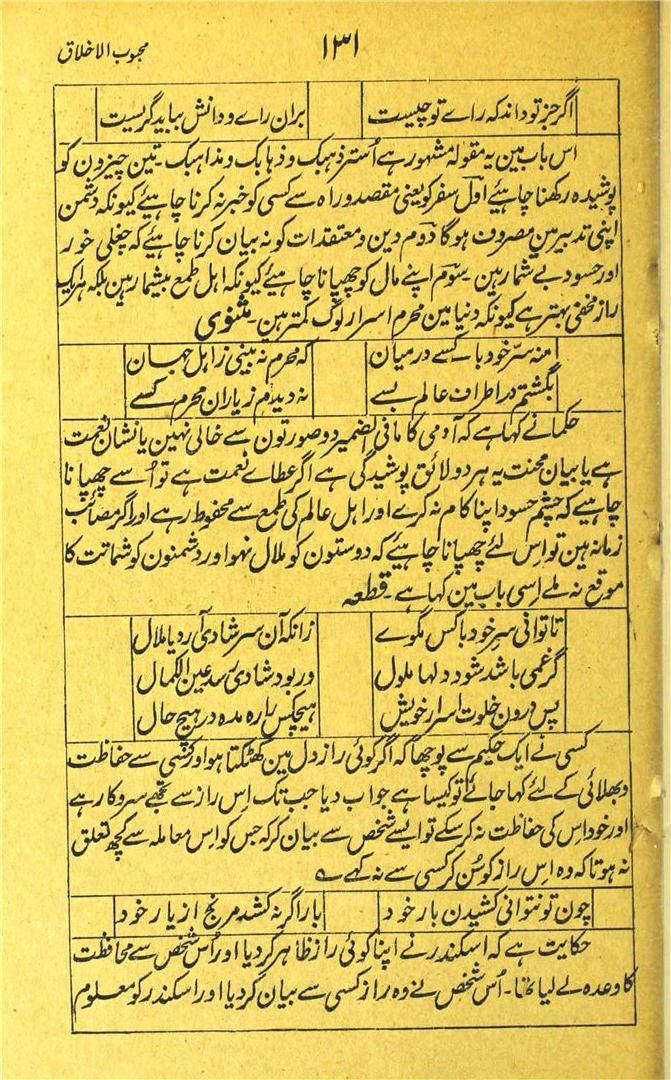 محبوب الاخلاق
۱۳۱
اگر جز تو داند کہ راے تو چیست بران راے و دانش بباید گریست
اس باب مین یہ مقولہ مشہور ہے اُستر ذہبک و ذہابک و مذاہبک۔ تین چیزون کو
پوشیدہ رکھنا چاہیئے اول سفر کو یعنی مقصد و راہ سے کسی کو خبر نہ کرنا چاہیئے کیونکہ دشمن
اپنی تدبیر مین مصروف ہوگا دوم دین و معتقدات کو نہ بیان کرنا چاہیئے کہ چغلی خور
اور حسود بے شمار ہین۔ سوم اپنے مال کو چھپانا چاہیئے کیونکہ اہل طمع بیشمار ہین بلکہ ہر ایک
راز مخفی بہتر ہے کیونکہ دنیا مین محرم اسرار لوگ کمتر ہین۔ مثنوی
منہ سرّ خود با کسے درمیان کہ محرم نہ بینی ز اہل جہان
بگشتم در اطراف عالم بسے نہ دیدم ز یاران محرم کسے
حکمانے کہا ہے کہ آدمی کا مافی الضمیر دو صورتون سے خالی نہین یا نشان نعمت
ہے یا بیان محنت یہ ہر دو لائق پوشیدگی ہے اگر عطاے نعمت ہے تو اُسے چھپانا
چاہیے کہ چشم حسود اپنا کام نہ کرے اور اہل عالم کی طمع سے محفوظ رہے اور اگر مصائب
زمانہ ہین تو اس لئے چھپانا چاہیئے کہ دوستون کو ملال نہو اور دشمنون کو شماتت کا
موقع نہ ملے اسی باب مین کہا ہے۔ قطعہ
تا توانی سرِ خود با کس مگوے زانکہ آن سر شادی آرد یا ملال
گر غمی باشد شود دلہا ملول در بود شادی رسد عین الکمال
پس درون خلوت اسرار خویش ہیچکس را رہ مدہ در ہیچ حال
کسی نے ایک حکیم سے پوچھا کہ اگر کوئی راز دل مین کھٹکتا ہو اور کسی سے حفاظت
و بھلائی کے لئے کہا جائے تو کیسا ہے جواب دیا جب تک اس راز سے تجھے سروکار ہے
اور خود اس کی حفاظت نہ کر سکے تو ایسے شخص سے بیان کر کہ جس کو اس معاملہ سے کچھ تعلق
نہ ہو تاکہ وہ اس راز کو سُن کر کسی سے نہ کہے ؎
چون تو نتوانی کشیدن بار خود بار اگر نہ کشد مرنج از یار خود
حکایت ہے کہ اسکندر نے اپنا کوئی راز ظاہر کر دیا اور اُس شخص سے محافظت
کا وعدہ لے لیا تھا۔ اُس شخص نے وہ راز کسی سے بیان کر دیا اور اسکندر کو معلوم